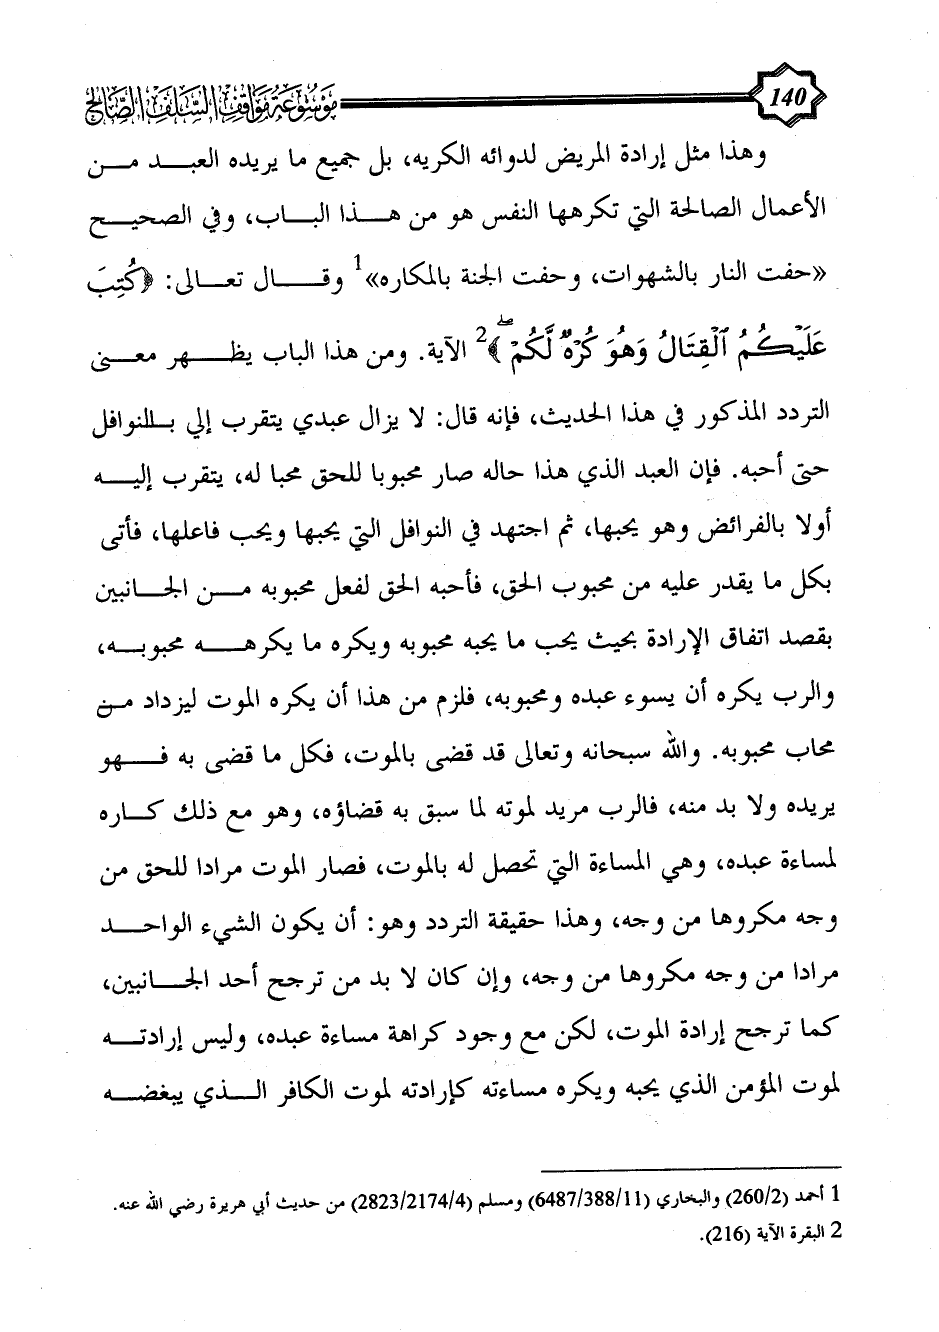 140
موسوعة مواقف السلف الصالح
وهذا مثل إرادة المريض لدوائه الكريه، بل جميع ما يريده العبد من
الأعمال الصالحة التي تكرهها النفس هو من هذا الباب، وفي الصحيح
«حفت النار بالشهوات، وحفت الجنة بالمكاره»1 وقال تعالى: ﴿كُتِبَ
عَلَيْكُمُ ٱلْقِتَالُ وَهُوَ كُرْهٌ لَّكُمْ ۖ﴾2 الآية. ومن هذا الباب يظهر معنى
التردد المذكور في هذا الحديث، فإنه قال: لا يزال عبدي يتقرب إلي بالنوافل
حتى أحبه. فإن العبد الذي هذا حاله صار محبوبا للحق محبا له، يتقرب إليه
أولا بالفرائض وهو يحبها، ثم اجتهد في النوافل التي يحبها ويحب فاعلها، فأتى
بكل ما يقدر عليه من محبوب الحق، فأحبه الحق لفعل محبوبه من الجانبين
بقصد اتفاق الإرادة بحيث يحب ما يحبه محبوبه ويكره ما يكرهه محبوبه،
والرب يكره أن يسوء عبده ومحبوبه، فلزم من هذا أن يكره الموت ليزداد من
محاب محبوبه. والله سبحانه وتعالى قد قضى بالموت، فكل ما قضى به فهو
يريده ولا بد منه، فالرب مريد لموته لما سبق به قضاؤه، وهو مع ذلك كاره
لمساءة عبده، وهي المساءة التي تحصل له بالموت، فصار الموت مرادا للحق من
وجه مكروها من وجه، وهذا حقيقة التردد وهو: أن يكون الشيء الواحد
مرادا من وجه مكروها من وجه، وإن كان لا بد من ترجح أحد الجانبين،
كما ترجح إرادة الموت، لكن مع وجود كراهة مساءة عبده، وليس إرادته
لموت المؤمن الذي يحبه ويكره مساءته كإرادته لموت الكافر الذي يبغضه
1 أحمد (260/2) والبخاري (6487/388/11) ومسلم (2823/2174/4) من حديث أبي هريرة رضي الله عنه.
2 البقرة الآية (216).